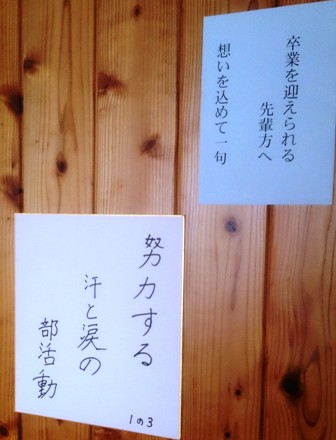 卒業を迎えられる
先輩方へ
想いを込めて一句
努力する
汗と涙の
部活動
1の3